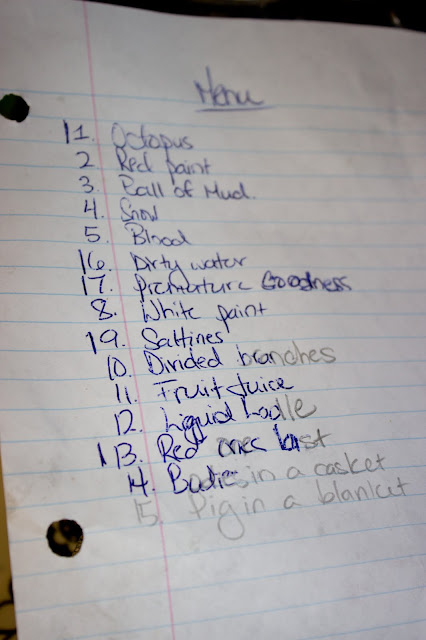 Menu
11. Octopus
2 Red paint
3. Ball of Mud.
4. Snow
5. Blood
16. Dirty water
17. Premature Goodness
8. White paint
19. Saltines
10. Divided branches
11. Fruit Juice
12. Liquid
13. Red last
14. Bodies in a casket
15. Pig in a blanket